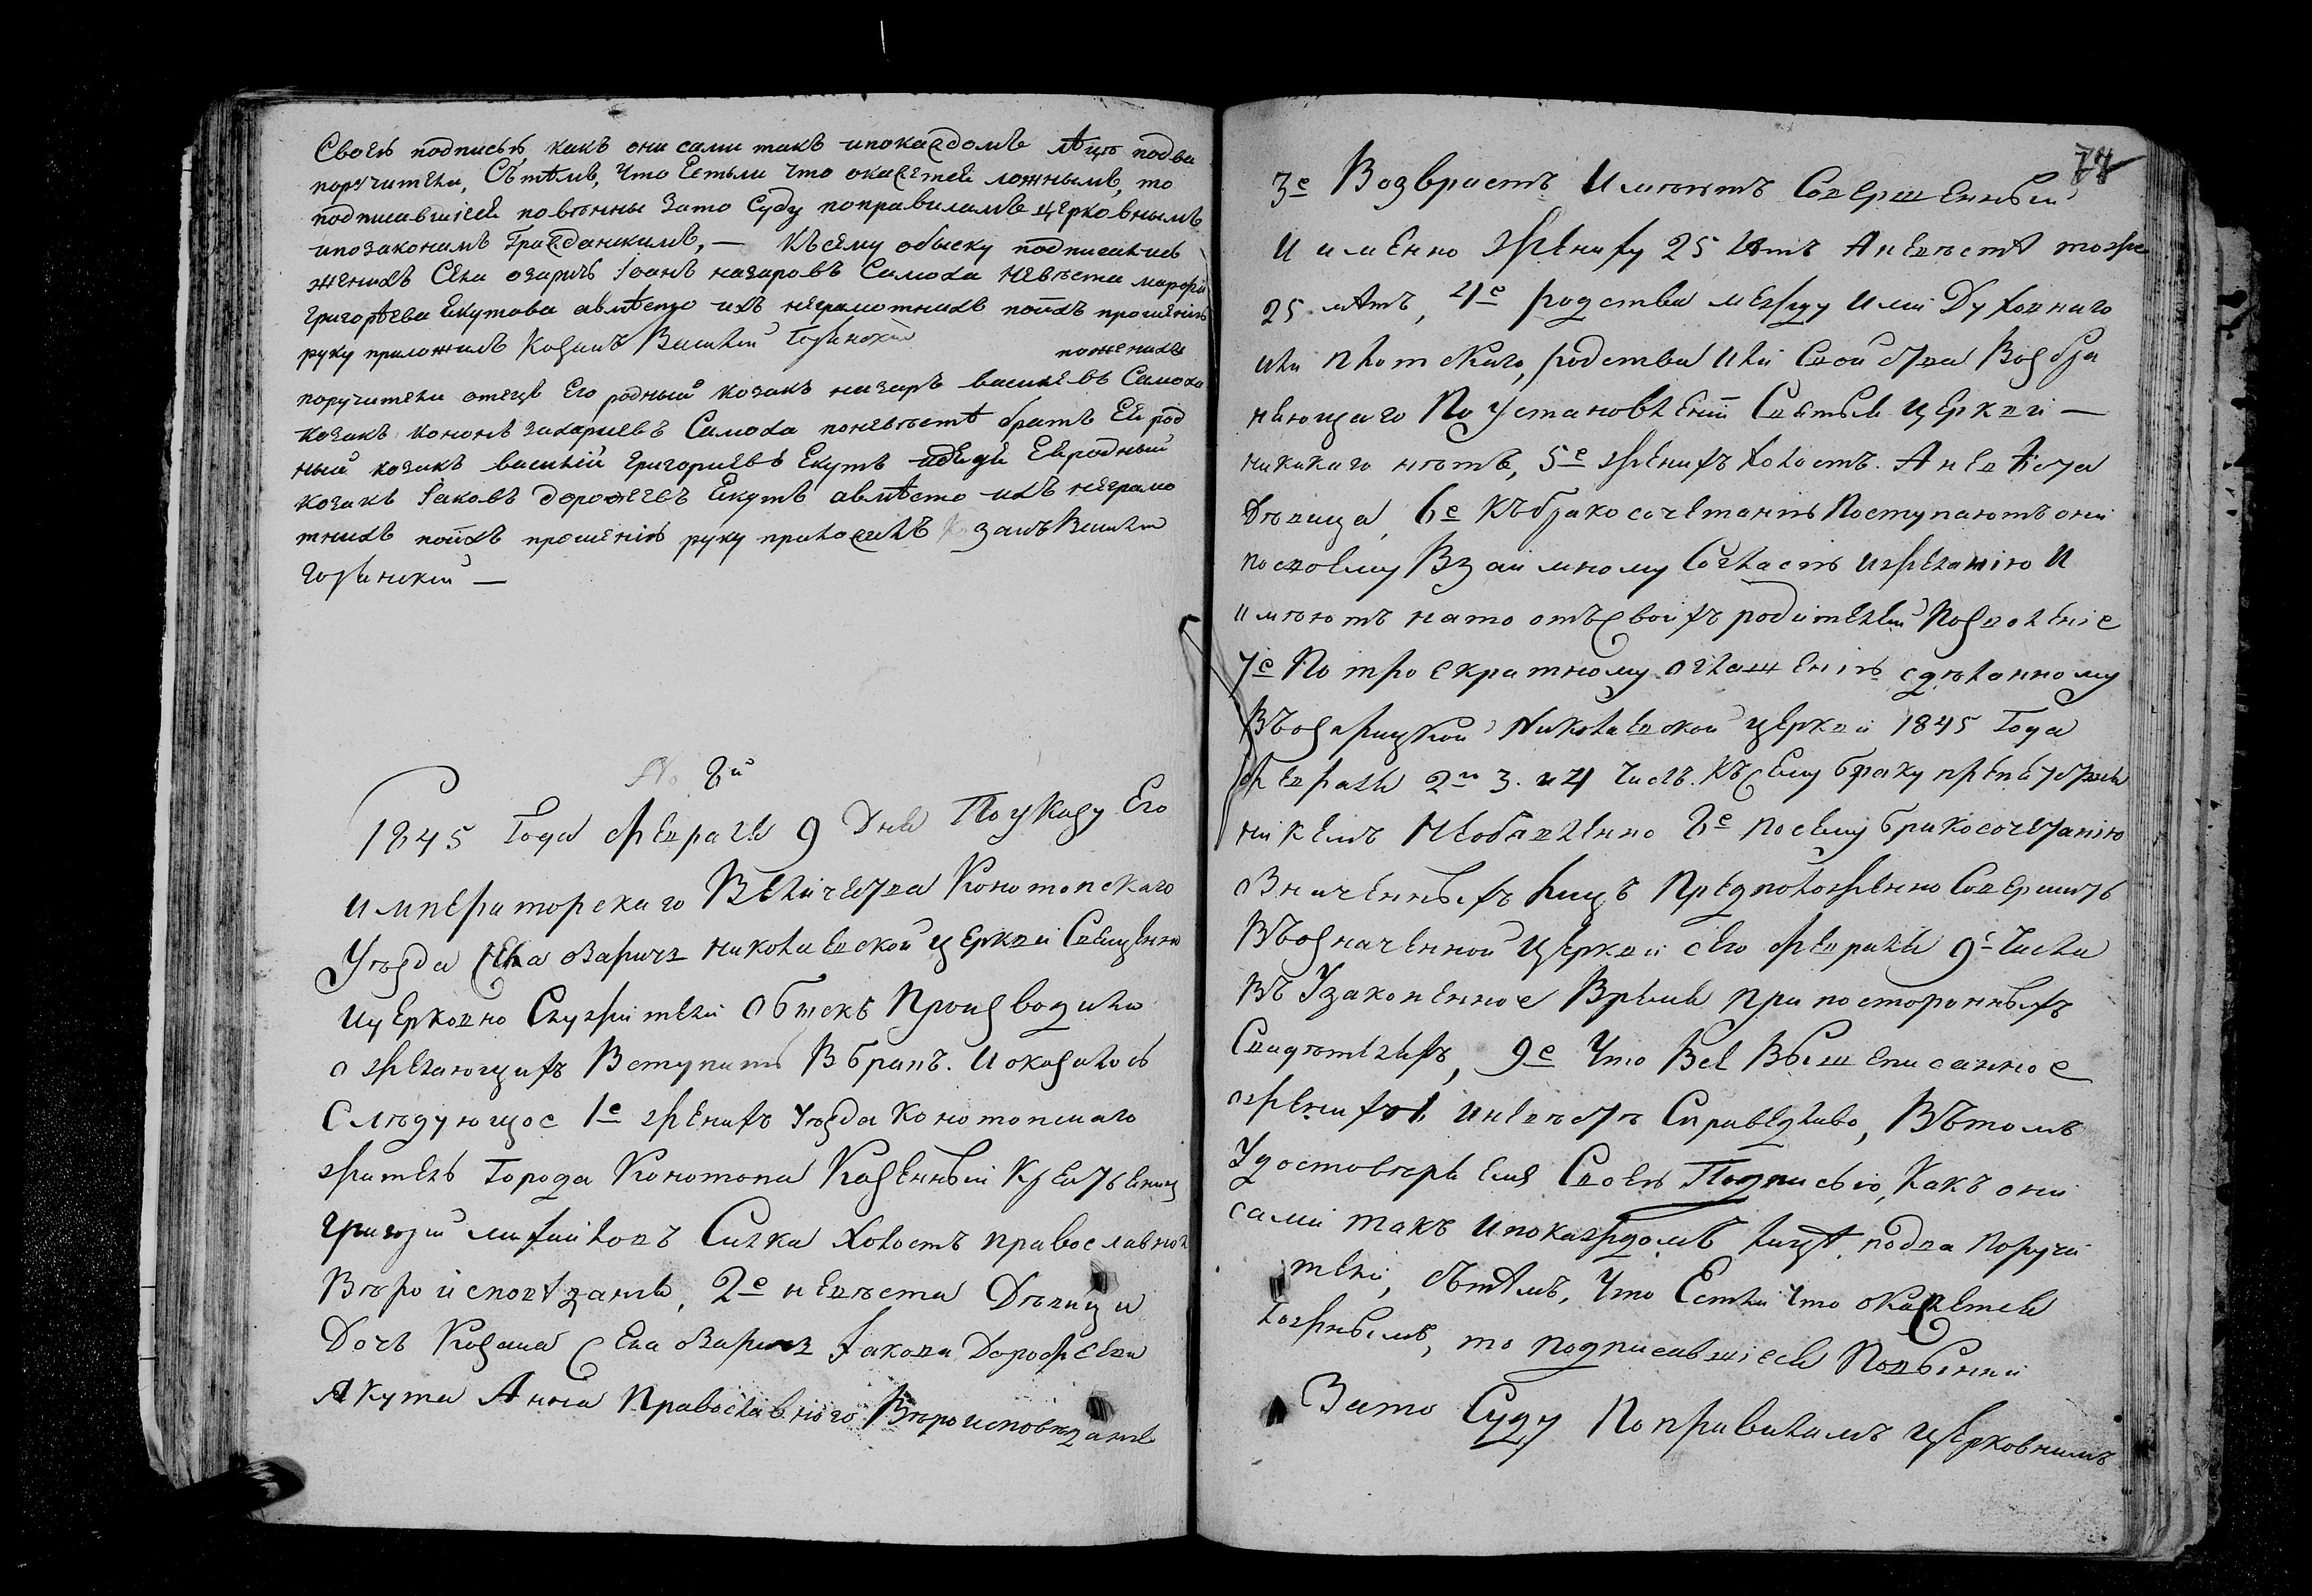 Своею подписью какъ они сами такъ ипокаждомъ лѣцѣ подва
поручители, Сътѣмъ, что Естьли что окажется ложнымъ, то
подписавшіеся повѣнны зато суду поправиламъ церковнымъ
ипозаконамъ Гражданскимъ, — Къ сему обыску подписались
женихъ Села озаричъ Іоанъ назаровъ Самоха невѣста марфа
григорѣева Екутова авмѣсто ихъ неграмотнихъ поихъ прошенію
руку приложилъ Козакъ Василій
по женихѣ
поручители отецъ Его родный козакъ назаръ василевъ Самоха
козакъ кононъ захаріевъ Самоха поневѣстѣ братъ Ей род
ный козакъ василій григоріевъ Екутъ идядя Ей родный
козакъ Іаковъ дорофеевъ Екутъ авмѣсто ихъ неграмо
тнихъ поихъ прошенію руку приложилъ Козакъ Василій
№ 8й
1845 Года февраля 9 Дня По указу Его
императорскаго Величества Конотопскаго
Уѣзда Села озаричъ николаевской церкви Священно
ицерковно Служители обискъ Производили
о желающихъ Вступить Вбракъ. И оказалось
Слѣдующое 1е женихъ Уѣзда Конотопскаго
житель Города Конотопа Казенный Крестьянинъ
григорій михайловъ Силка холостъ православнаго
Вѣроисповѣданія, 2е невѣста Дѣвица
Дочь Козака Села озаричъ Іакова Дорофеева
Якута Анна Православного Вѣроисповѣданія
77
3е Возврастъ Имѣютъ Совершенный
и именно жениху 25 лѣтъ Аневѣстѣ тоже
25 лѣтъ, 4е родства между ими Духовнаго
или плотскаго, родства или свойства Возбра
няющаго По установленій Святыя церкви —
никакаго нѣтъ, 5е женихъ холостъ. Аневѣста
Дѣвица, 6е Къбракосочетанію Поступаютъ они
посвоему Взаимному Согласію ижеланію И
имѣютъ нато отъсвоихъ родителей Позволеніе
7е По троекратному оглашенію сдѣланному
Въозарицкой Николаевской церкви 1845 Года
февраля 2го 3. и 4 числъ. Къ сему браку препятствія
никемъ Необявленно 8е посему бракосочетанію
означенныхъ лицъ Предположенно Совершить
Въозначенной церкви сего февраля 9е числа
Въ Узаконенное Время при постороннихъ
Свидѣтеляхъ, 9е Что Все Вышеписанное
оженихѣ иневѣстѣ Справедливо, Вътомъ
Удостовѣряемъ Своею Подписью, Какъ они
сами такъ ипокаждомъ лицѣ подва поручи
тели, сътѣмъ, Что Естьли Что окажется
ложнымъ, то подписавшіеся Повинни
Зато Суду Поправиламъ церковнимъ